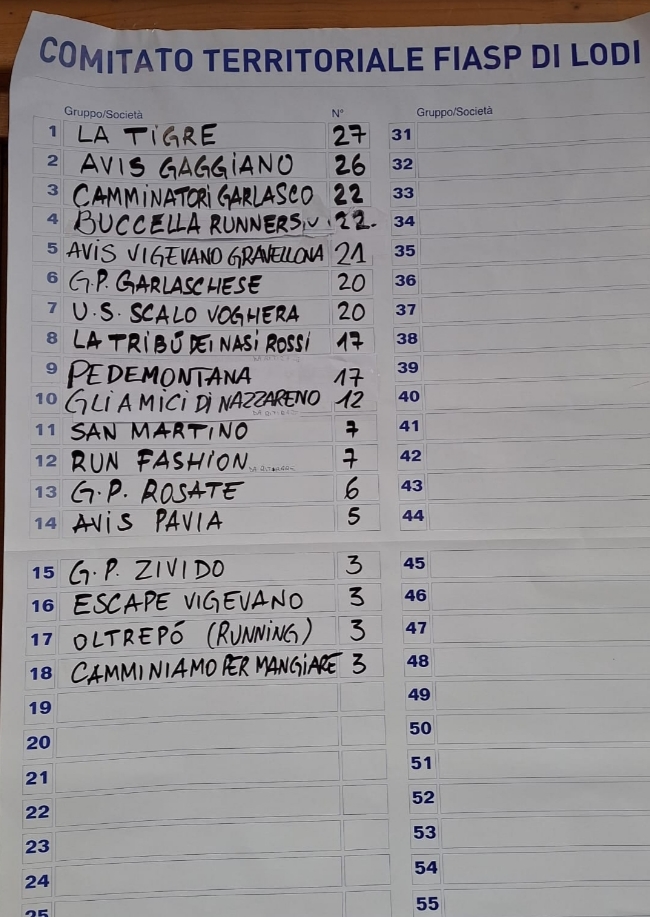 COMITATO TERRITORIALE FIASP DI LODI
Gruppo/Società N° Gruppo/Società
1 LA TIGRE 27 31
2 AVIS GAGGIANO 26 32
3 CAMMINATORI GARLASCO 22 33
4 BUCCELLA RUNNERS 22. 34
5 AVIS VIGEVANO GRAVELLONA 21 35
6 G.P. GARLASCHESE 20 36
7 U.S. SCALO VOGHERA 20 37
8 LA TRIBÚ DEI NASI ROSSI 17 38
9 PEDEMONTANA 17 39
10 GLI AMICI DI NAZZARENO 12 40
11 SAN MARTINO 7 41
12 RUN FASHION 7 42
13 G.P. ROSATE 6 43
14 AVIS PAVIA 5 44
15 G.P. ZIVIDO 3 45
16 ESCAPE VIGEVANO 3 46
17 OLTREPÓ (RUNNING) 3 47
18 CAMMINIAMO PER MANGIARE 3 48
19 49
20 50
21 51
22 52
23 53
24 54
25 55